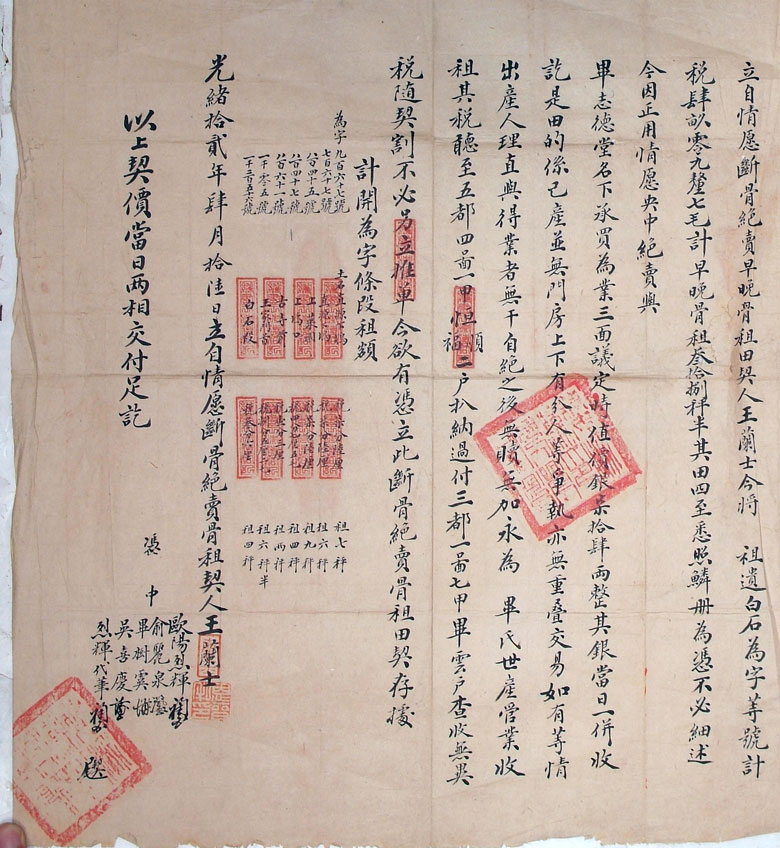 立自情愿斷骨絕賣早晚骨租田契人王蘭士今將 祖遺白石為字等號計
稅肆畝零九釐七毛計早晚骨租叁拾捌秤半其田四至悉照鱗冊為憑不必細述
今因正用情愿央中絕賣與
畢志德堂名下承買為業三面議定時值價銀柒拾肆兩整其銀當日一併收
訖是田的係己產並無門房上下有分人等爭執亦無重疊交易如有等情
出產人理直與得業者無干自絕之後無贖無加永為 畢氏世產營業收
租其稅聽至五都四啚一甲恒順福二戶扒納過付三都一啚七甲畢雲戶查收無異
稅隨契割不必另立推单今欲有憑立此斷骨絕賣骨租田契存據
計開為字條段租額
為字九百六十七號 租七秤
七百六十七號 租六秤
八百四十五號 工菜園 租九秤
八百四十七號 租四秤
八百六十一號 租兩秤
一千零五號 租六秤半
一千二百五十六號 白石段 租四秤
光緒拾貳年肆月拾陸日立自情愿斷骨絕賣骨租契人王蘭士
憑中 歐陽烈輝
俞麗泉
畢樹雲
吳喜慶
烈輝代筆
以上契價當日兩相交付足訖